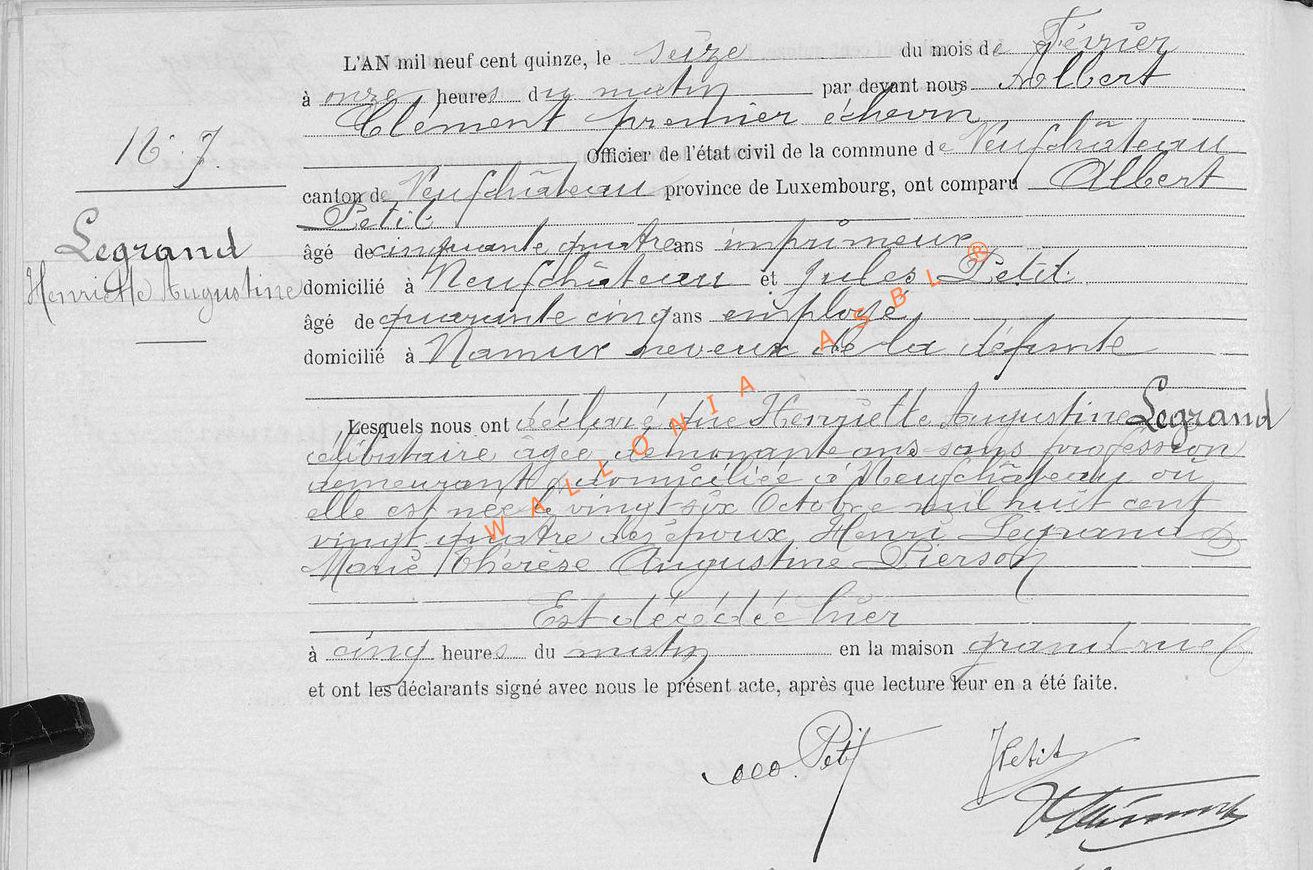 L'AN mil neuf cent quinze, le seize du mois de Février
à onze heures du matin par devant nous Albert
Clément premier échevin
Officier de l'état civil de la commune de Neufchâteau
canton de Neufchâteau province de Luxembourg, ont comparu Albert
Petit
âgé de cinquante quatre ans imprimeur
domicilié à Neufchâteau et Jules Petit
âgé de quarante cinq ans employé
domicilié à Namur neveux de la défunte
Lesquels nous ont déclaré que Henriette Augustine Legrand
célibataire âgée de nonante ans sans profession
demeurant domiciliée à Neufchâteau où
elle est née le vingt six Octobre mil huit cent
vingt quatre des époux Henri Legrand &
Marie Thérèse Augustine Pierson
Est décédée hier
à cinq heures du matin en la maison grand rue
et ont les déclarants signé avec nous le présent acte, après que lecture leur en a été faite.
16. 7.
Legrand
Henriette Augustine
Petit
JPetit
WALLONIA ASBL ®